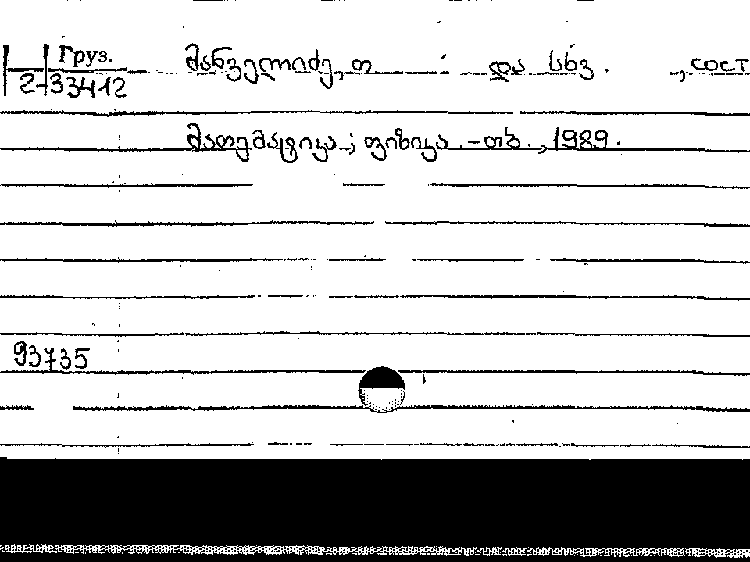 Груз. მანველიძე, თ. და სხვ. , сост
2-33412
მათემატიკა; ფიზიკა. - თბ., 1989.
93735